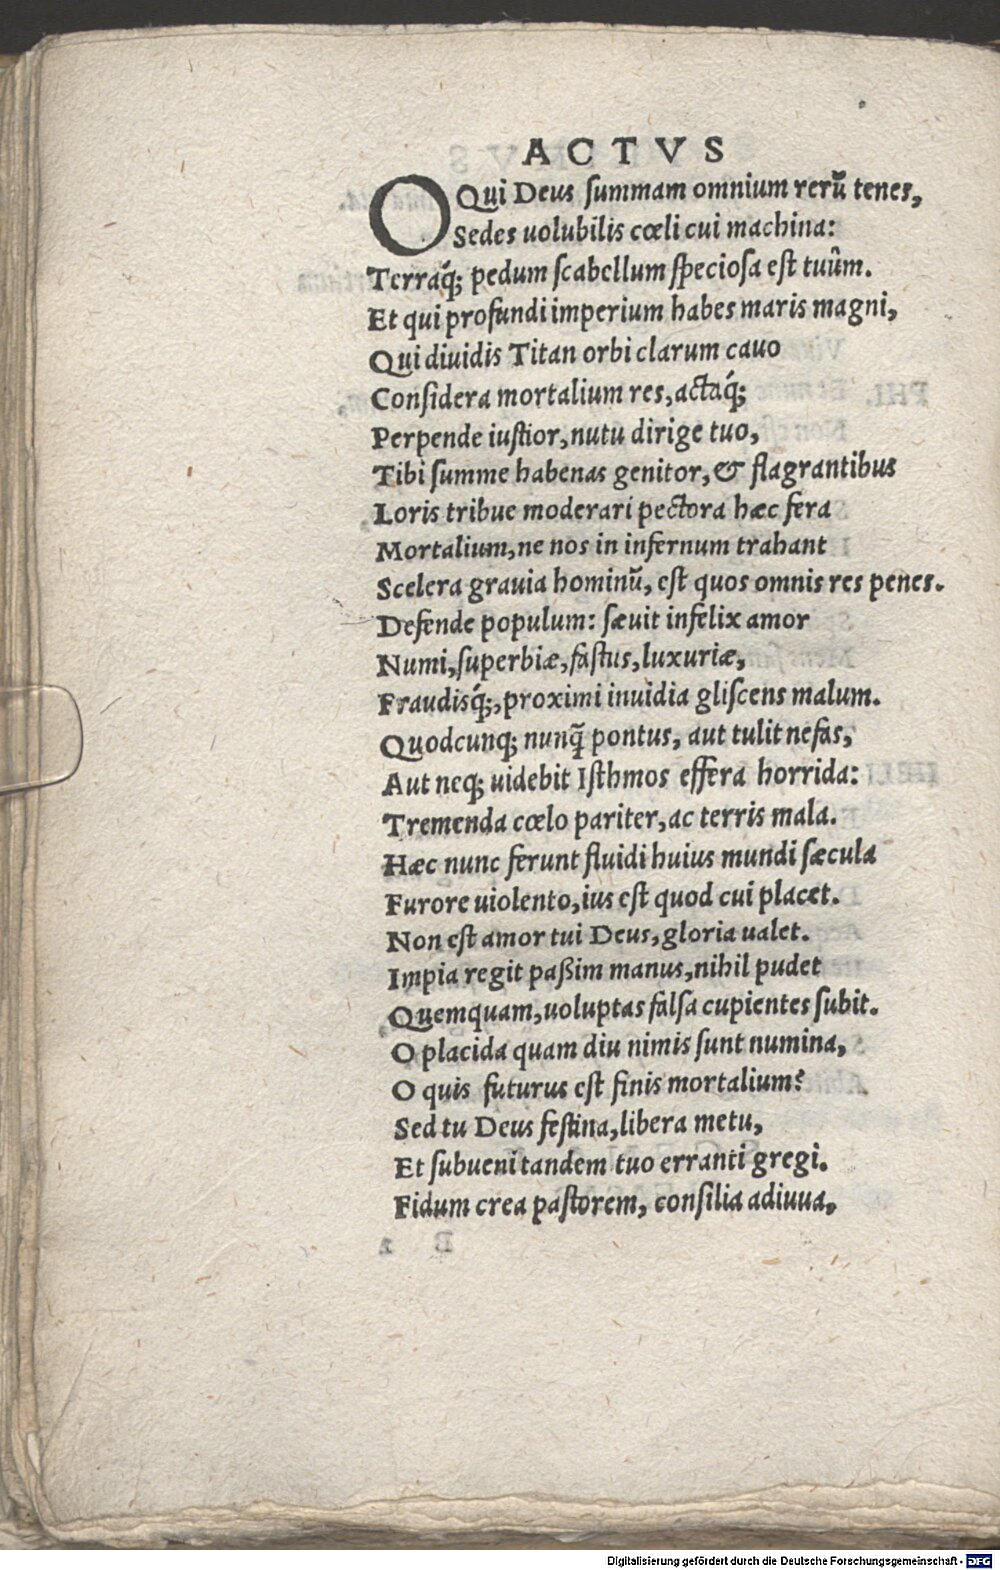 ACTVS
O Qui Deus summam omnium rerũ tenes,
Sedes uolubilis cœli cui machina:
Terraq́; pedum scabellum speciosa est tuûm.
Et qui profundi imperium habes maris magni,
Qui diuidis Titan orbi clarum cauo
Considera mortalium res, actaq́;
Perpende iustior, nutu dirige tuo,
Tibi summe habenas genitor, & flagrantibus
Loris tribue moderari pectora hæc fera
Mortalium, ne nos in infernum trahant
Scelera grauia hominũ, est quos omnis res penes.
Defende populum: sæuit infelix amor
Numi, superbiæ, fastus, luxuriæ,
Fraudisq́;, proximi inuidia gliscens malum.
Quodcunq; nunq̃ pontus, aut tulit nefas,
Aut neq; uidebit Isthmos effera horrida:
Tremenda cœlo pariter, ac terris mala.
Hæc nunc ferunt fluidi huius mundi sæcula
Furore uiolento, ius est quod cui placet.
Non est amor tui Deus, gloria ualet.
Impia regit paßim manus, nihil pudet
Quemquam, uoluptas falsa cupientes subit.
O placida quam diu nimis sunt numina,
O quis futurus est finis mortalium?
Sed tu Deus festina, libera metu,
Et subueni tandem tuo erranti gregi.
Fidum crea pastorem, consilia adiuua,
Digitalisierung gefördert durch die Deutsche Forschungsgemeinschaft - DFG